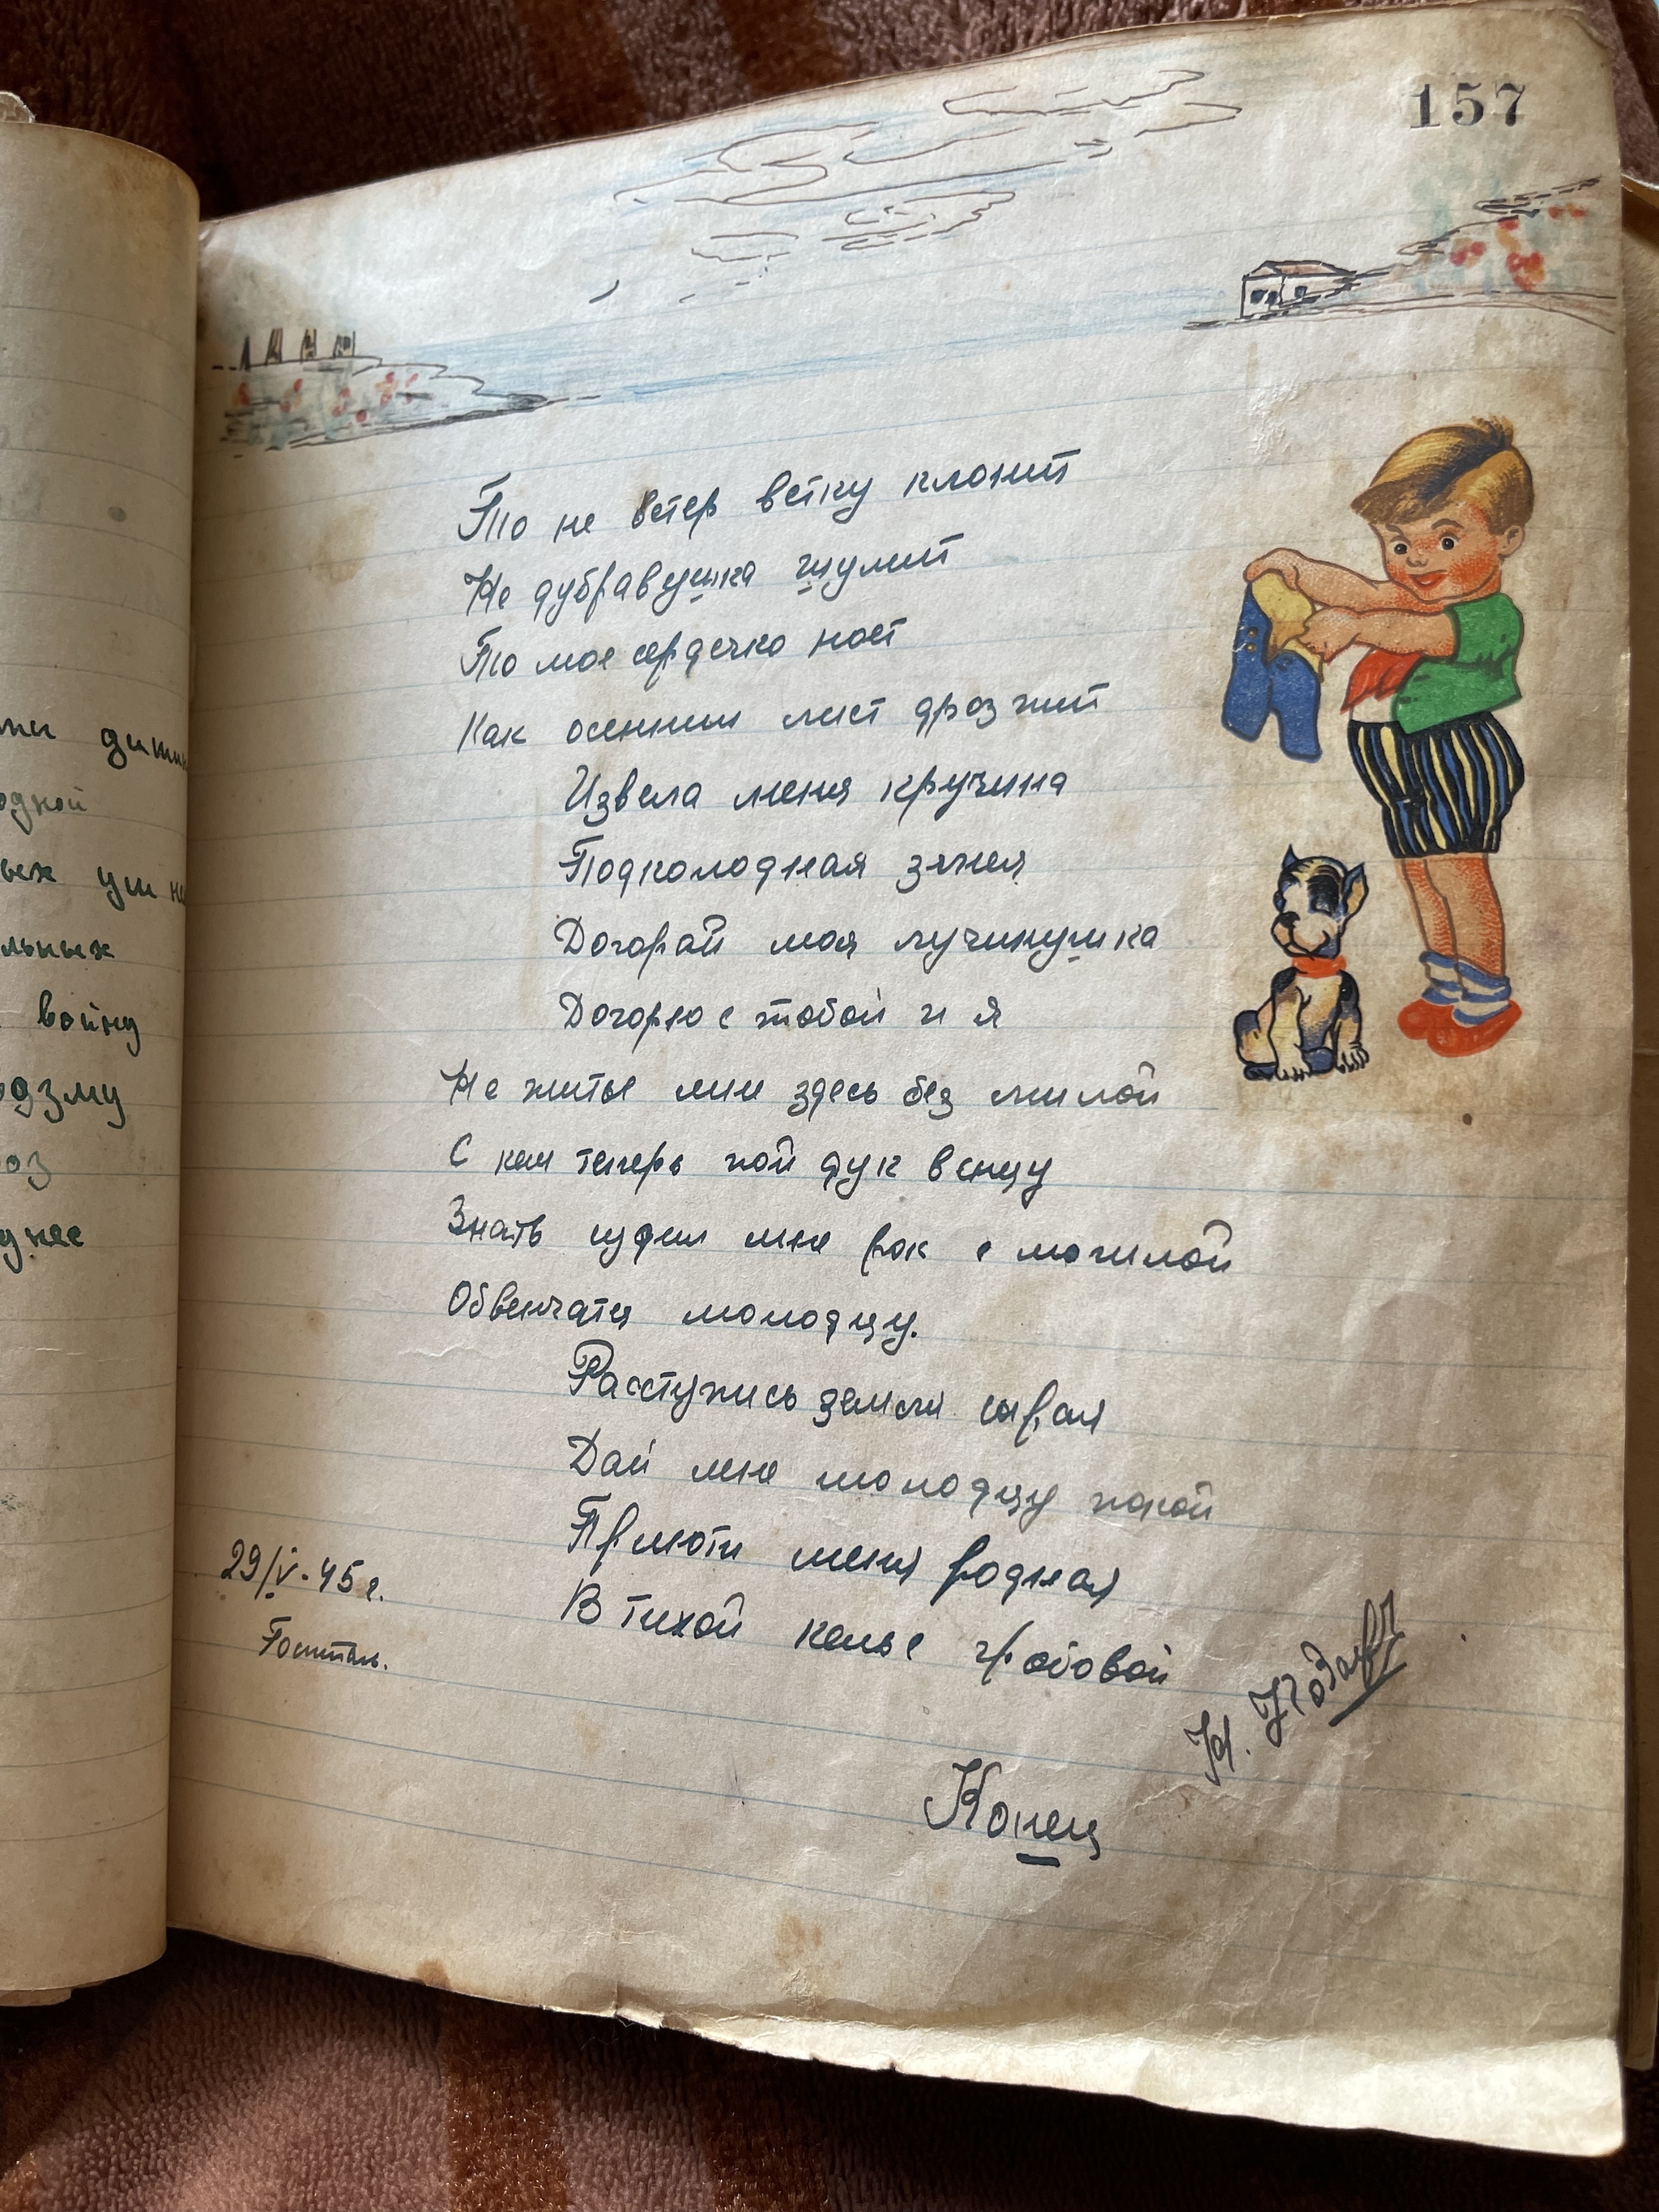 157
То не ветер ветку клонит
Не дубравушка шумит
То мое сердечко ноет
Как осенний лист дрозжит
Извела меня кручина
Подколодная змея
Догорай моя лучинушка
Догорю с тобой и я
Не житье мне здесь без милой
С кем теперь пойду к венцу
Знать судил мне рок с могилой
Обвенчатся молодцу.
Расступись земля сырая
Дай мне молодцу покой
Приюти меня родная
В тихой келье гробовой
29/V-45 г.
Госпиталь.
Конец
одной
льных
войну